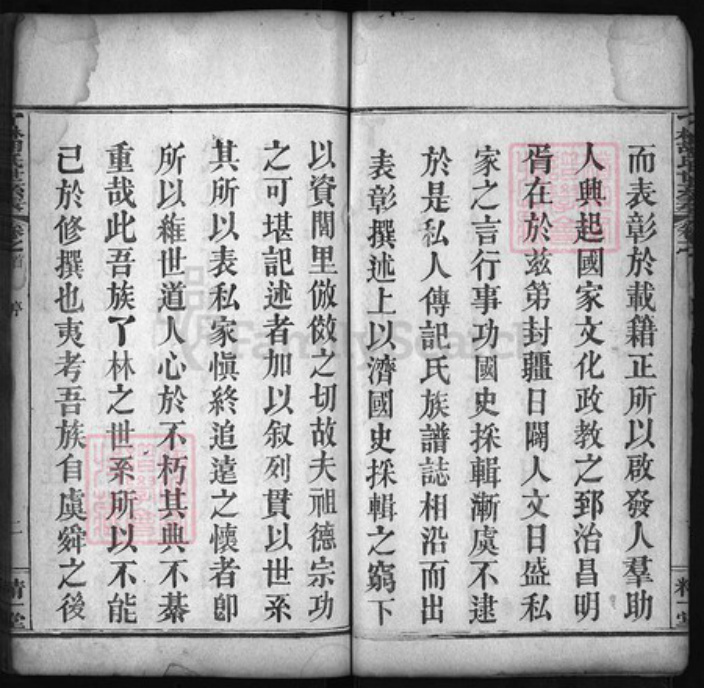 而表彰於載籍正所以啟發人羣助
人興起國家文化政教之郅治昌明
胥在於茲第封疆日闢人文日盛私
家之言行事功國史採輯漸虞不逮
於是私人傳記氏族譜誌相沿而出
表彰撰述上以濟國史採輯之窮下
以資閭里倣傚之切故夫祖德宗功
之可堪記述者加以叙列貫以世系
其所以表私家愼終追遠之懷者卽
所以維世道人心於不朽其典不綦
重哉此吾族了林之世系所以不能
己於修撰也夷考吾族自虞舜之後
精一堂
精一堂
FamilySearch